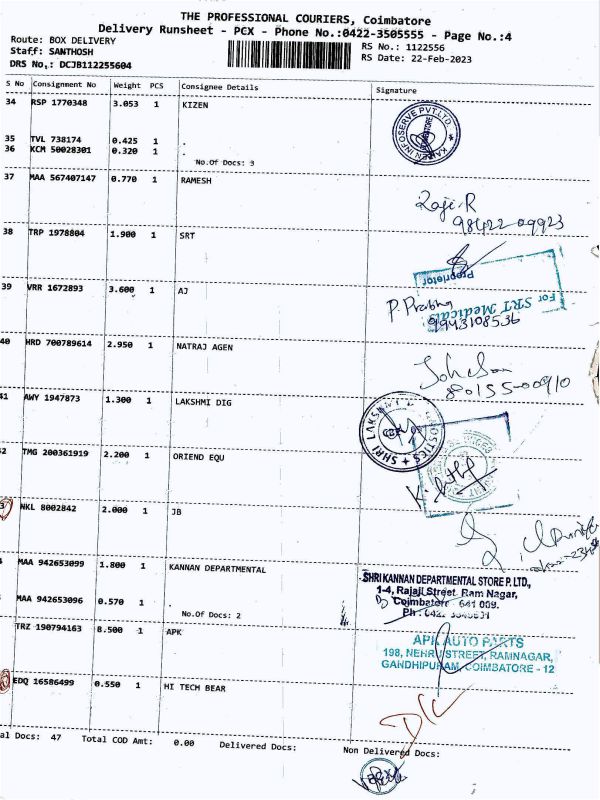 THE PROFESSIONAL COURIERS, Coimbatore
Delivery Runsheet - PCX - Phone No.:0422-3505555 - Page No.:4
Route: BOX DELIVERY
Staff: SANTHOSH
DRS No,: DCJB112255604
RS No.: 1122556
RS Date: 22-Feb-2023
S No Consignment No Weight PCS Consignee Details Signature
34 RSP 1770348 3.053 1 KIZEN
35 TVL 738174 0.425 1 .
36 KCM 50028301 0.320 1 .
No.Of Docs: 3
37 MAA 567407147 0.770 1 RAMESH
Raji-R
98422-09923
38 TRP 1978804 1.900 1 SRT
Proprietor
For SRT Medicals
39 VRR 1672893 3.600 1 AJ
P. Prabha
9943108536
40 HRD 700789614 2.950 1 NATRAJ AGEN
80155-00910
41 AWY 1947873 1.300 1 LAKSHMI DIG
42 TMG 200361919 2.200 1 ORIEND EQU
NKL 8002842 2.000 1 JB
MAA 942653099 1.800 1 KANNAN DEPARTMENTAL
SHRI KANNAN DEPARTMENTAL STORE P. LTD.,
1-4, Rajaji Street, Ram Nagar,
Coimbatore 641 009.
MAA 942653096 0.570 1 .
No.Of Docs: 2
TRZ 190794163 8.500 1 APK
APK AUTO PARTS
198, NEHRU STREET, RAMNAGAR,
GANDHIPURAM, COIMBATORE - 12
EDQ 16586499 0.550 1 HI TECH BEAR
al Docs: 47 Total COD Amt: 0.00 Delivered Docs: Non Delivered Docs: